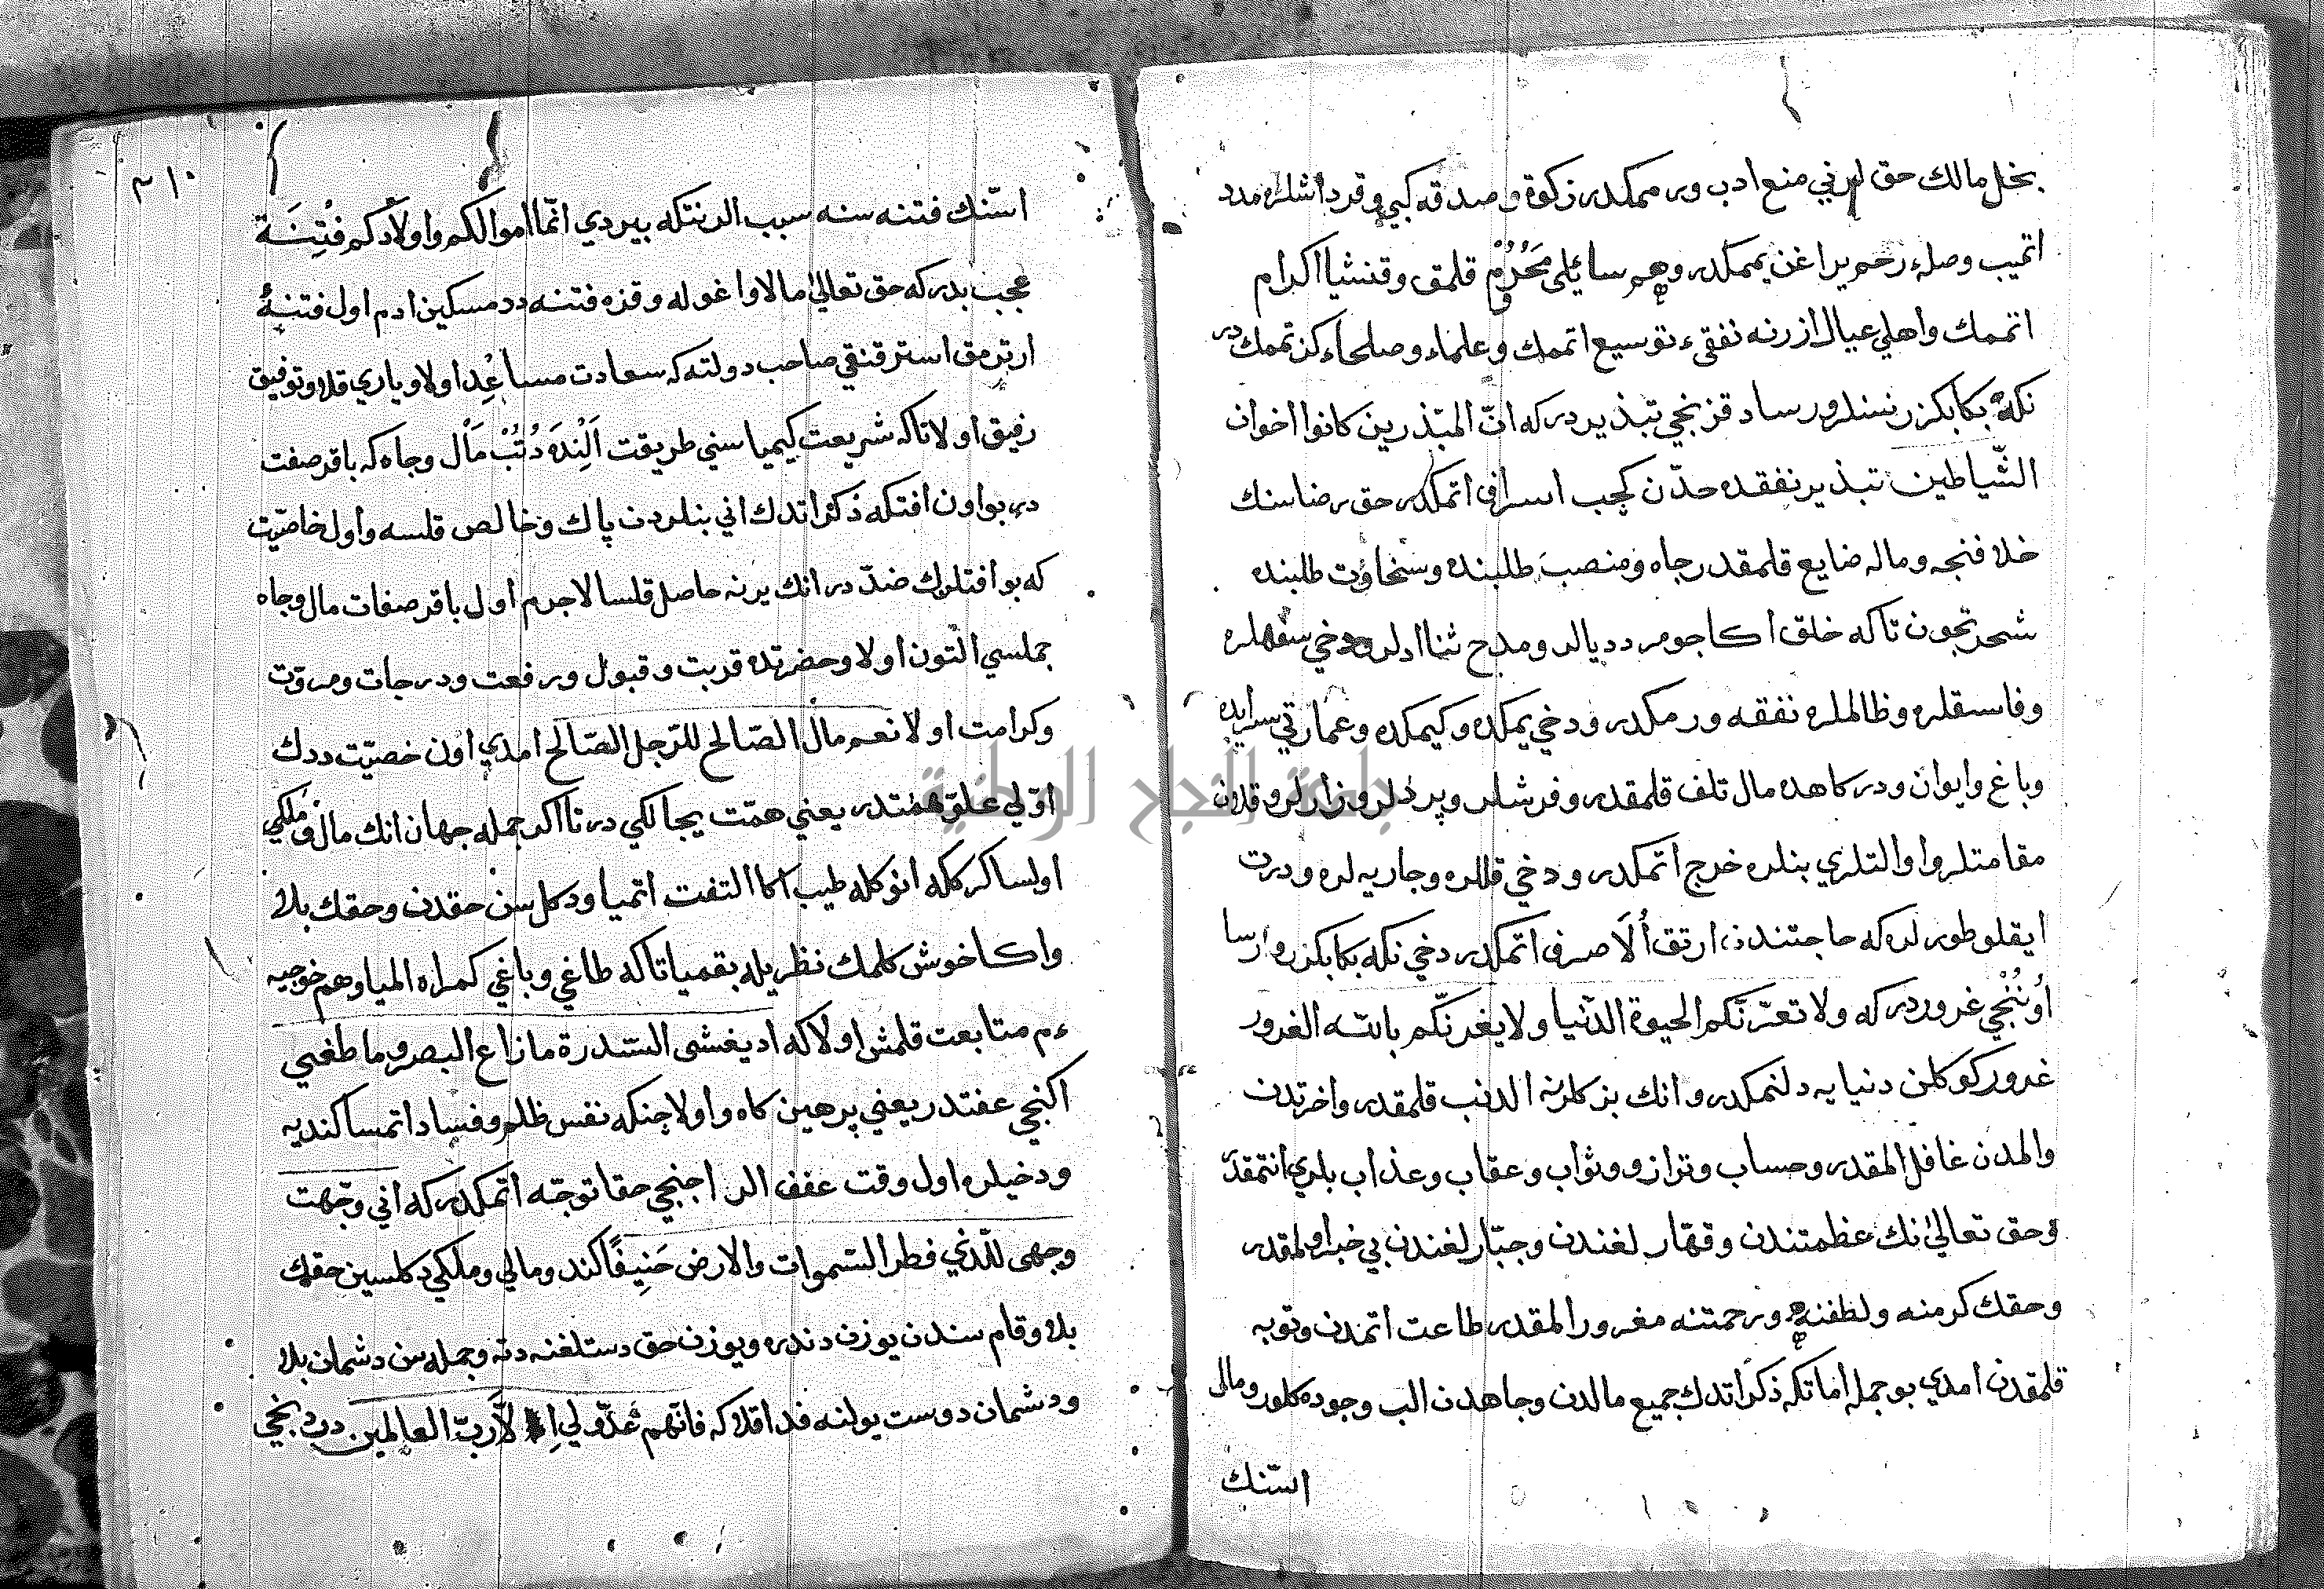 بخل مالك حق لرني منع ادب ورممكدر زكوة وصدقه كبي وقرداشلره مدد
اتميب وصلهٔ رحم يراغن يممكدر وهم سائلى محروم قلمق وقنشيا اكرام
اتممك واهلي عيال ازرنه نفقهٔ توسيع اتممك وعلماء وصلحاء كزتممك در
نكه بكابكزر نسلر ورسا دقزنجي تبذير در كه انّ المبّذرين كانوا اخوان
الشّياطين تبذير نفقده حدّن كجب اسراف اتمكدر حق رضاسنك
خلافنجه وماله ضايع قلمقدر جاه ومنصب طلبنده وسخاوت طلبنده
شحرتجون تاكه خلق اكا جومرد ديالر ومدح ثنا ادلر ودخي سفهلره
وفاسقلره وظالملره نفقه ورمكدر ودخي يمكده وكيمكده وعمارتي سرايده
وباغ وايوان ودركاهده مال تلف قلمقدر وفرشلر وپردلر وزارلر وقلان
مقامتلر واوالتلري بنلره خرج اتمكدر ودخي قللره وجاريه لره ودرت
ايقلو طورلره كه حاجتندن ارتق ألا صرف اتمكدر دخي نكه بكابكزر وارسا
أونُنْجي غرور در كه ولا تعزّنّكم الحيوة الدّنيا ولا يغرنّكم بالله الغرور
غرور كوكلن دنيايه دلنمكدر وانك بزكلرنه الدنب قلمقدر واخرتدن
والمدن غافل المقدر وحساب وترازو وثواب وعقاب وعذاب بلري انتمقدر
وحق تعالىٰ نك عظمتندن وقهّار لغندن وجبّار لغندن بي خبر اولمقدر
وحقك كرمنه ولطفنه ورحمتنه مغرور المقدر طاعت اتمدن وتوبه
قلمقدن امدي بو جمله أفاتكه ذكر اتدك جميع مالدن وجاهدن الب وجوده كلور ومالى
استنك
٣١٠
استنك فتنه سنه سبب الرنتكه بيردي انّما اموالكم واولادكم فتنة
عجب بدركه حق تعالىٰ مالا واغوله وقزه فتنه دد مسكين ادم اول فتنهٔ
ارترمق استر قنقي صاحب دولته كه سعادت مساعد اولا وياري قلا وتوفيق
رفيق اولا تاكه شريعت كيمياسني طريقت النده دتب مال وجاه كه باقر صفت
در بو اون افتكه ذكر اتدك اني بنلردن پاك وخالص قلسه واول خاصيّت
كه بو افتلرك ضدّ در انك يرنه حاصل قلسا لاجرم اول باقر صفات مال وجاه
جملسي التون اولا وحضرتده قربت وقبول ورفعت ودرجات ومروّت
وكرامت اولا نعم مال الصّالح للرّجل الصّالح امدي اون خصيّت ددك
اوّلي علوّ همتدر يعني همّت يجالكي در تا اكر جمله جهان انك مال وملكي
اولسا كركله انوكله طيب اكا التفت اتميا ودكل سن حقدن وحقك بلا
واكا خوش كلمك نظريله بقميا تاكه طاغي وباغي كمراه المياوهم خوجيه
ءم متابعت قلمش اولا كه اذ يغشى السّدرة ما زاغ البصر وما طغى
اكنجي عفتدر يعني پرهين كاه واولا چنكه نفس ظلم وفساد اتمسا كنديه
ودخيلره اول وقت عفف الر اجنجي حقا توجّه اتمكدر كه اني وجّهت
وجهى للّذي فطر السّموات والارض حنيفًا كند ومالي وملكي دكلسين حقك
بلا وقام سندن يوزن دندره ويوزن حق دستلغنه دته وجمله سن دشمان بلا
ودشمان دوست يولنه فدا قلا كه فانّهم عدّولي الاّ ربّ العالمين دردنجي